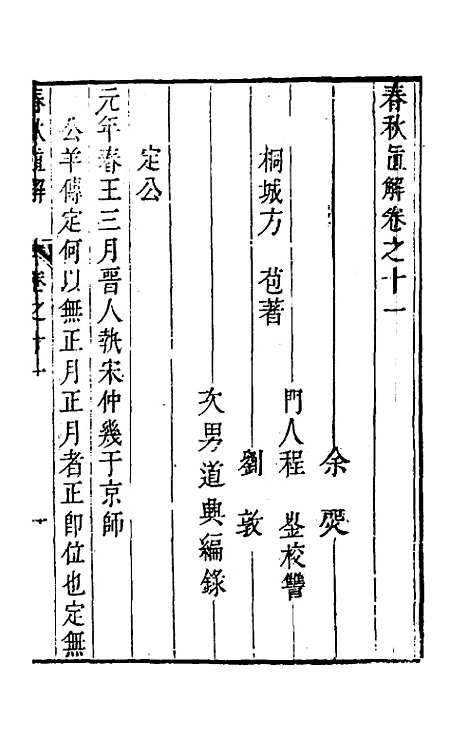 春秋直解卷之十一
余熋
桐城方苞著
門人程崟校讐
劉敦
次男道興編錄
定公
元年春王三月晉人執宋仲幾于京師
公羊傳定何以無正月正月者正即位也定無
春秋直解
卷之十一
一